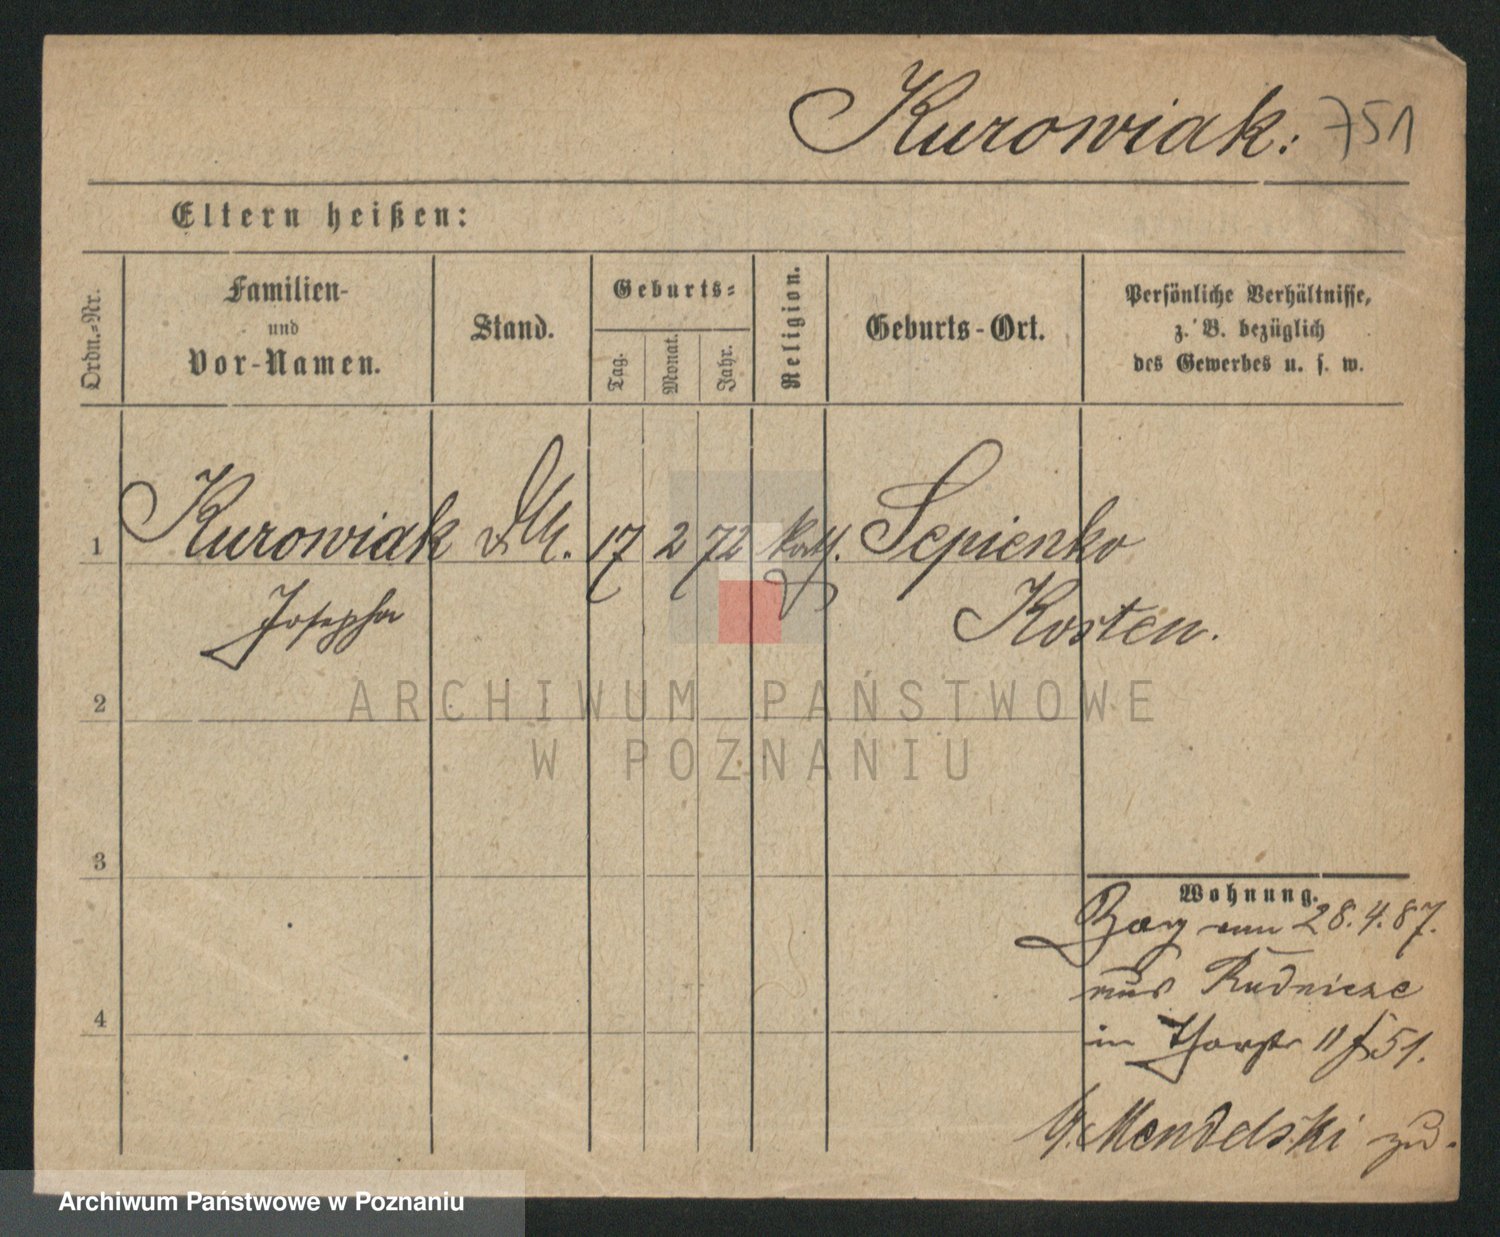 Kurowiak: 751
Eltern heißen:
Ordn.-Nr.
Familien-
und
Vor-Namen.
Stand.
Geburts-
Tag.
Monat.
Jahr.
Religion.
Geburts-Ort.
Persönliche Verhältnisse,
z. B. bezüglich
des Gewerbes u. s. w.
1 Kurowiak 17 2 72 kath. Sepienko
Josepha Kosten.
2
ARCHIWUM PAŃSTWOWE
W POZNANIU
3
Wohnung.
Zog am 28.4.87.
aus Rudnicze
4
in 11 51.
Mendelski zu.
Archiwum Państwowe w Poznaniu